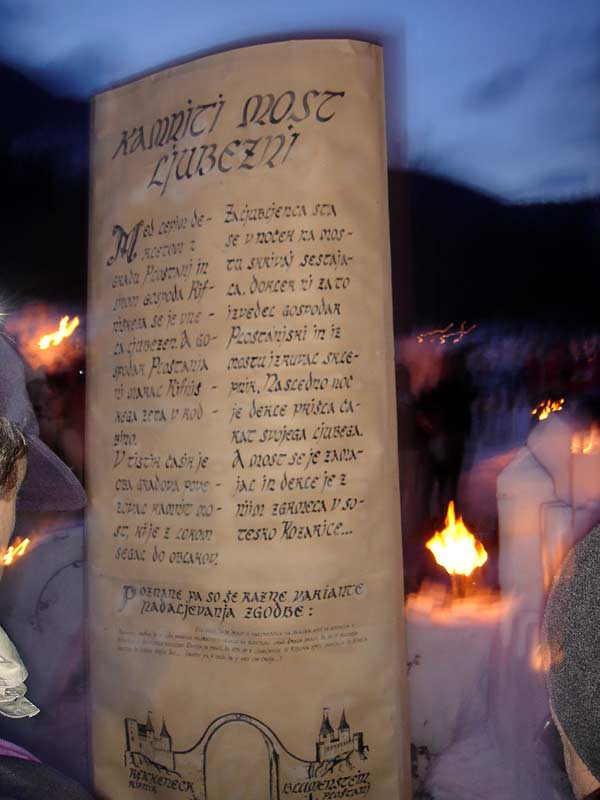 KAMNITI MOST
LJUBEZNI
MED LEPIM DE-
KLETOM Z
GRADU PLOSTANJ IN
SINOM GOSPODA RIF-
NIŠKEGA SE JE VNE-
LA LJUBEZEN. A GO-
SPODAR PLOSTANJA
NI MARAL RIFNIŠ-
KEGA ZETA V ROD-
BINO.
V TISTIH ČASIH JE
OBA GRADOVA POVE-
ZOVAL KAMNIT MO-
ST, KI JE Z LOKOM
SEGAL DO OBLAKOV.
ZALJUBLJENCA STA
SE V NOČEH NA MOS-
TU SKRIVAJ SESTAJA-
LA, DOKLER NI ZA TO
IZVEDEL GOSPODAR
PLOSTANJSKI IN IZ
MOSTU IZRUVAL SKLE-
PNIK. NASLEDNO NOČ
JE DEKLE PRIŠLA ČA-
KAT SVOJEGA LJUBEGA.
A MOST SE JE ZAMA-
JAL IN DEKLE JE Z
NJIM ZGRMELA V SO-
TESKO KOZARICE...
POZNANE PA SO ŠE RAZNE VARIANTE
NADALJEVANJA ZGODBE:
REKKENECK
RIFNIK
BLUMENSTEIN
PLOSTANJ